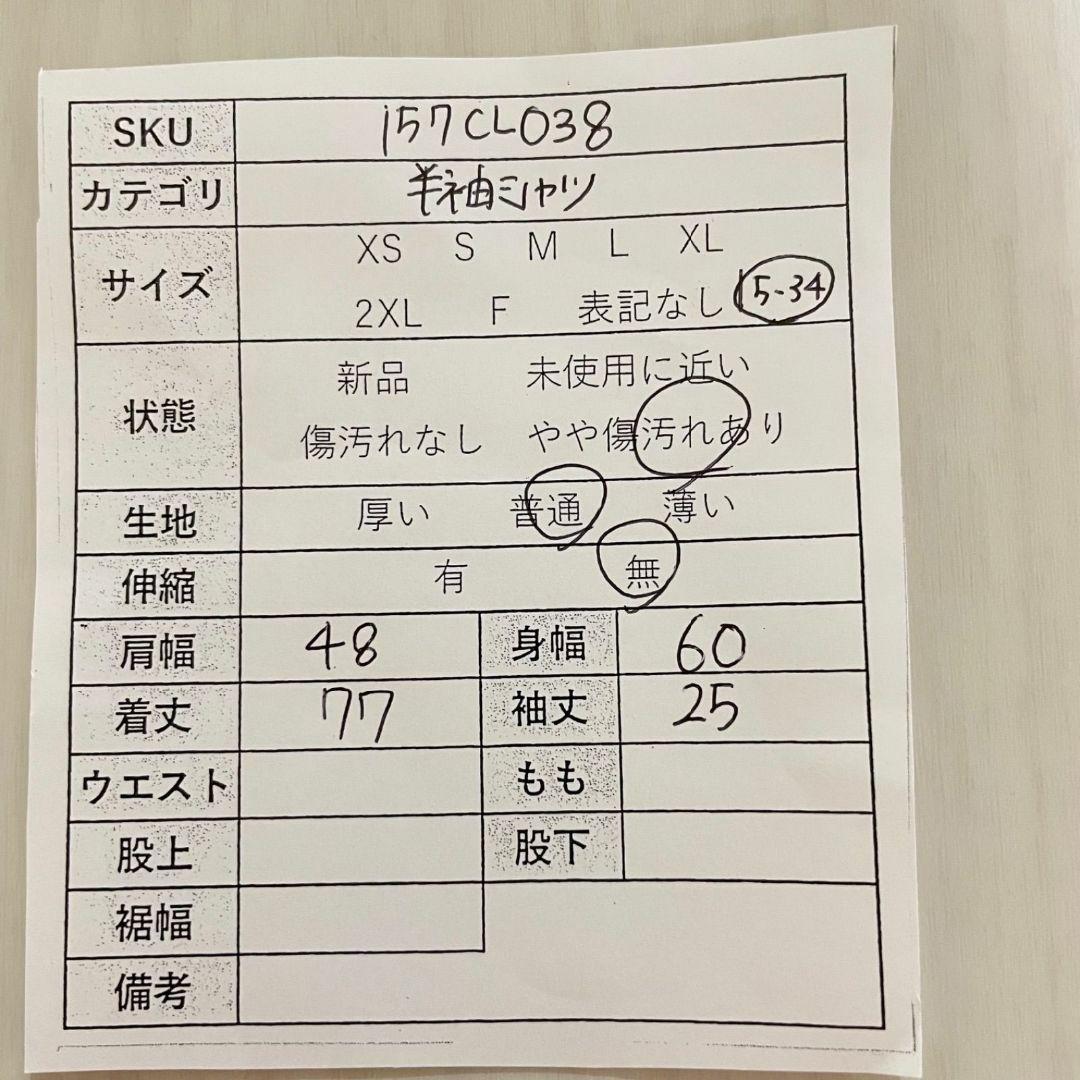 SKU 157CL038
カテゴリ 半袖シャツ
サイズ XS S M L XL
2XL F 表記なし 15-34
状態 新品 未使用に近い
傷汚れなし やや傷汚れあり
生地 厚い 普通 薄い
伸縮 有 無
肩幅 48 身幅 60
着丈 77 袖丈 25
ウエスト もも
股上 股下
裾幅
備考